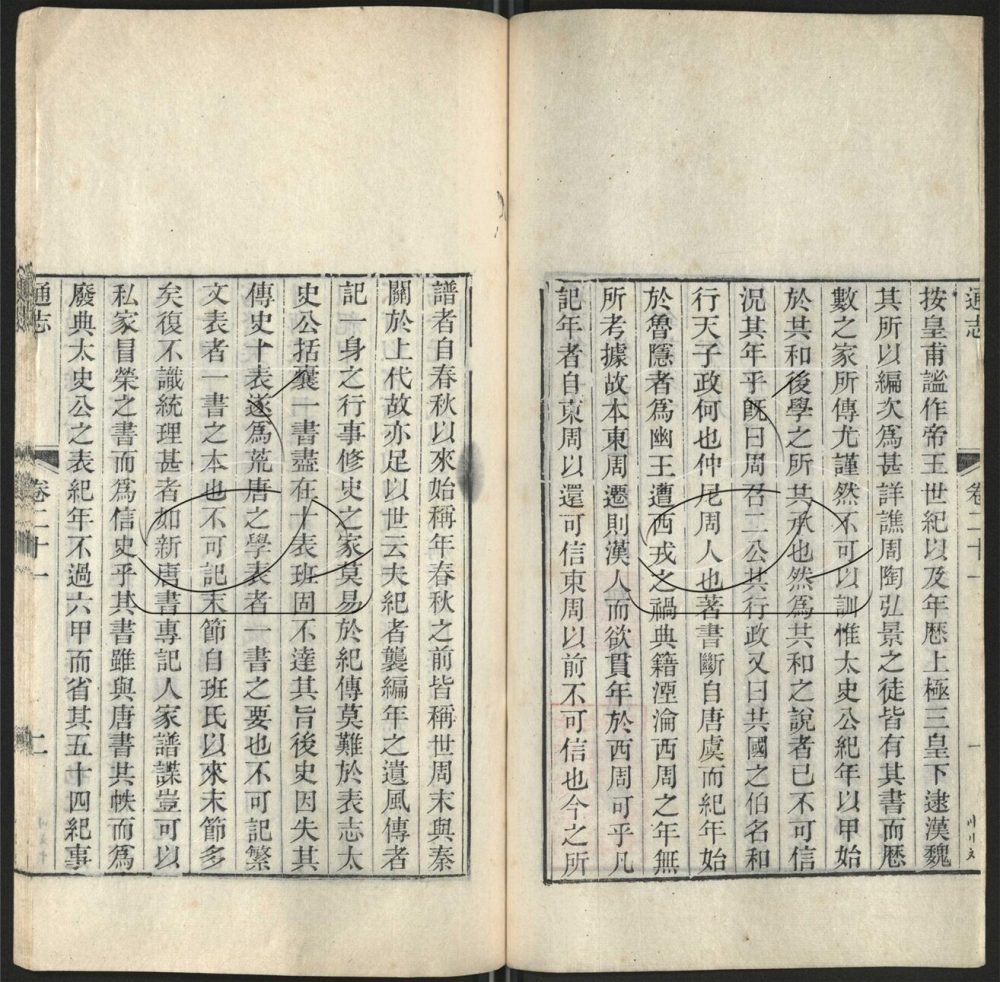 通志
卷二十一
一
按皇甫謐作帝王世紀以及年歷上極三皇下逮漢魏
其所以編次為甚詳譙周陶弘景之徒皆有其書而歷
數之家所傳尤謹然不可以訓惟太史公紀年以甲始
於共和後學之所共承也然為共和之說者已不可信
況其年乎既曰周召二公共行政又曰共國之伯名和
行天子政何也仲尼周人也著書斷自唐虞而紀年始
於魯隱者為幽王遭西戎之禍典籍湮淪西周之年無
所考據故本東周遷則漢人而欲貫年於西周可乎凡
記年者自東周以還可信東周以前不可信也今之所
譜者自春秋以來始稱年春秋之前皆稱世周末與秦
關於上代故亦足以世云夫紀者襲編年之遺風傳者
記一身之行事修史之家莫易於紀傳莫難於表志太
史公括囊一書盡在十表班固不達其旨後史因失其
傳史十表遂為荒唐之學表者一書之要也不可記繁
文表者一書之本也不可記末節自班氏以來末節多
矣復不識統理甚者如新唐書專記人家譜諜豈可以
私家冒榮之書而為信史乎其書雖與唐書共帙而為
廢典太史公之表紀年不過六甲而省其五十四紀事
通志
卷二十一
二